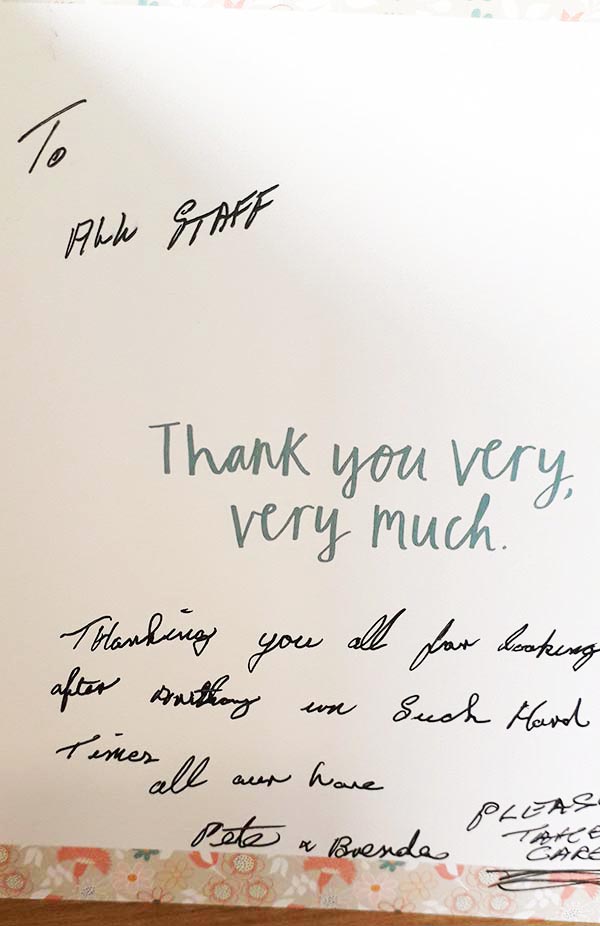 To
All STAFF
Thank you very,
very much.
Thanking you all for looking
after Anthony in Such Hard
Times
all our love
Pete & Brenda
PLEASE
TAKE
CARE